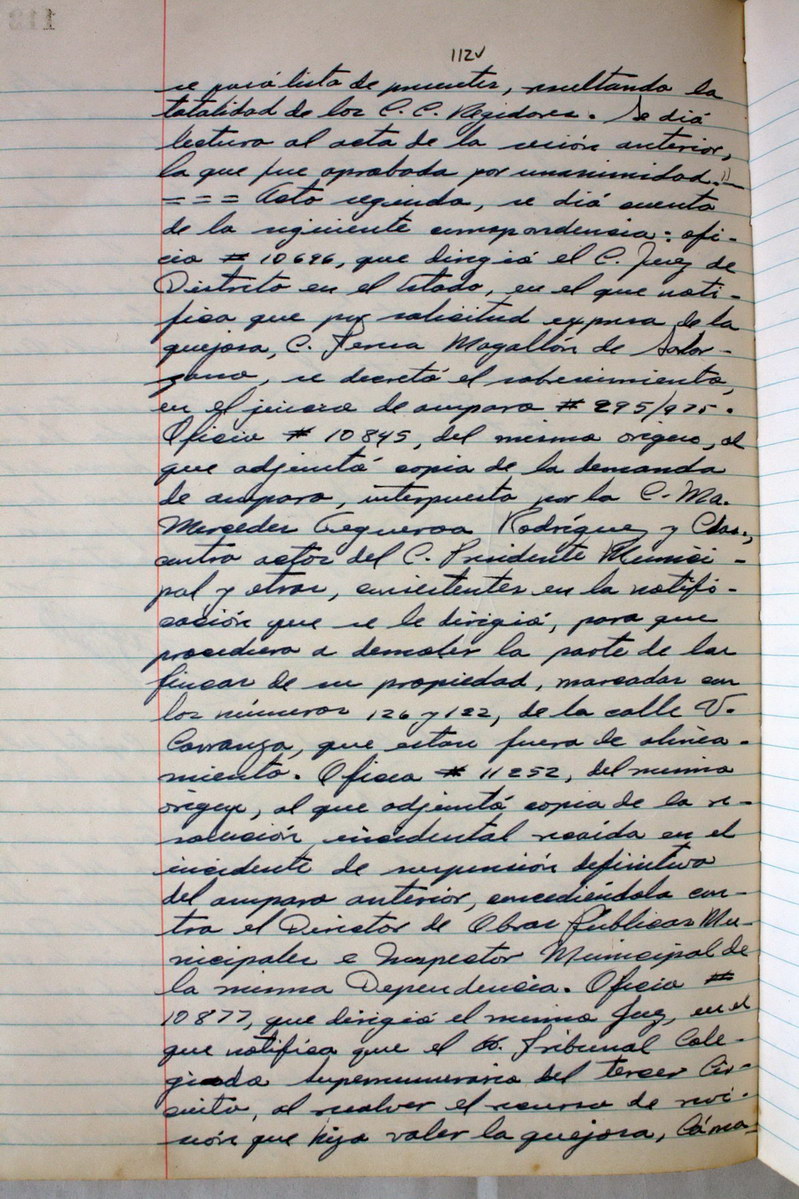 112v
se pasó lista de presentes, resultando la
totalidad de los C. C. Regidores. Se dió
lectura al acta de la sesión anterior,
la que fue aprobada por unanimidad.
= = = Acto seguido, se dió cuenta
de la siguiente correspondencia: ofi-
cio # 10696, que dirigió el C. Juez de
Distrito en el Estado, en el que noti-
fica que por solicitud expresa de la
quejosa, C. Magallón de Solór-
zano, se decretó el sobreseimiento,
en el juicio de amparo # 295/975.
Oficio # 10845, del mismo origen, al
que adjuntó copia de la demanda
de amparo, interpuesta por la C. Ma.
Mercedes Figueroa Rodríguez y
contra actos del C. Presidente Munici-
pal y otras, consistentes en la notifi-
cación que se le dirigió, para que
procediera a demoler la parte de las
fincas de su propiedad, marcadas con
los números 126 y 122, de la calle V.
Carranza, que estan fuera de alinea-
miento. Oficio # 11252, del mismo
origen, al que adjuntó copia de la re-
solución incidental recaída en el
incidente de suspensión definitiva
del amparo anterior, concediéndola con-
tra el Director de Obras Públicas Mu-
nicipales e Inspector Municipal de
la misma Dependencia. Oficio #
10877, que dirigió el mismo Juez, en el
que notifica que el H. Tribunal Cole-
giado Supernumerario del tercer Cir-
cuito, al resolver el recurso de revi-
sión que hizo valer la quejosa, Cáma-